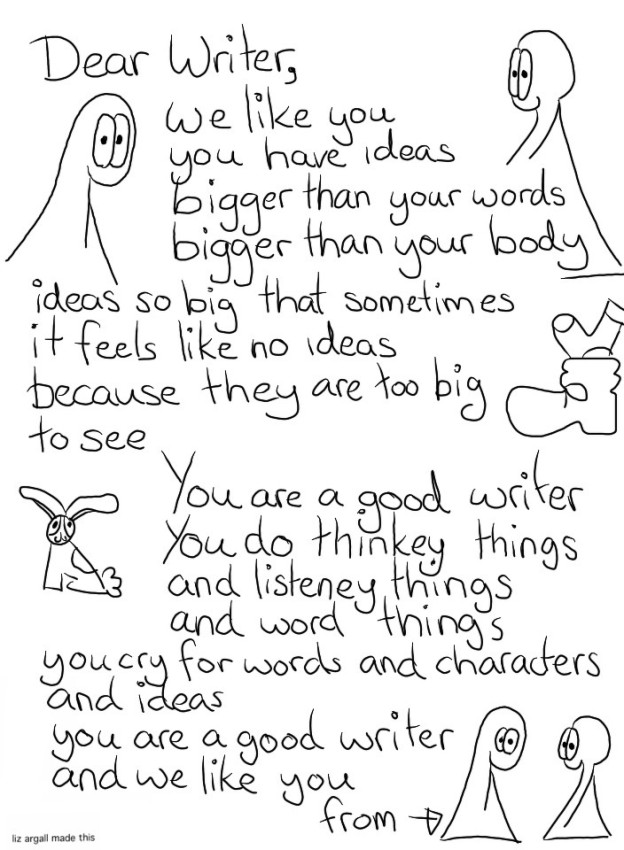 Dear Writer,
we like you
you have ideas
bigger than your words
bigger than your body
ideas so big that sometimes
it feels like no ideas
because they are too big
to see
You are a good writer
You do thinkey things
and listeney things
and word things
you cry for words and characters
and ideas
you are a good writer
and we like you
from →
liz argall made this